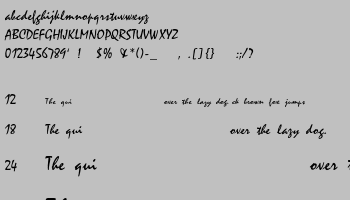 abcdefghijklmnopqrstuvwxyz
ABCDEFGHIJKLMNOPQRSTUVWXYZ
0123456789' ! $% &*()-_ , .[]{} :;/?
12 The qui over the lazy dog. ck brown fox jumps
18 The qui over the lazy dog.
24 The qui over